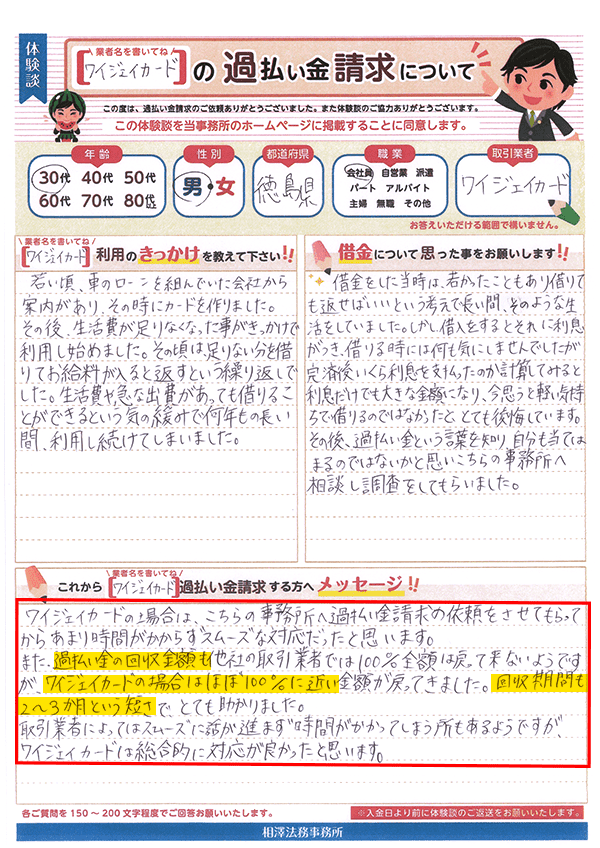 体験談
業者名を書いてね
[ワイジェイカード]の過払い金請求について
この度は、過払い金請求のご依頼ありがとうございました。また体験談のご協力ありがとうございます。
この体験談を当事務所のホームページに掲載することに同意します。
年齢
30代 40代 50代
60代 70代 80代
性別
男・女
都道府県
徳島県
職業
会社員 自営業 派遣
パート アルバイト
主婦 無職 その他
取引業者
ワイジェイカード
お答えいただける範囲で構いません。
業者名を書いてね
[ワイジェイカード]利用のきっかけを教えて下さい!!
若い頃、車のローンを組んでいた会社から
案内があり、その時にカードを作りました。
その後、生活費が足りなくなった事がきっかけで
利用し始めました。その頃は足りない分を借
りてお給料が入ると返すという繰り返しで
した。生活費や急な出費があっても借りるこ
とができるという気の緩みで何年もの長い
間、利用し続けてしまいました。
借金について思った事をお願いします!!
借金をした当時は、若かったこともあり借りて
も返せばいいという考えで長い間、そのような生
活をしていました。しかし借入をするとそれに利息
がつき、借りる時には何も気にしませんでしたが
完済後いくら利息を支払ったのか計算してみると
利息だけでも大きな金額になり、今思うと軽い気持
ちで借りるのではなかったと、とても後悔しています。
その後、過払い金という言葉を知り、自分も当ては
まるのではないかと思いこちらの事務所へ
相談し調査をしてもらいました。
業者名を書いてね
これから[ワイジェイカード]過払い金請求する方へメッセージ!!
ワイジェイカードの場合は、こちらの事務所へ過払い金請求の依頼をさせてもらって
からあまり時間がかからずスムーズな対応だったと思います。
また、過払い金の回収金額も他社の取引業者では100%全額は戻って来ないようです
が、ワイジェイカードの場合はほぼ100%に近い金額が戻ってきました。回収期間も
2〜3か月という短さで、とても助かりました。
取引業者によってはスムーズに話が進まず時間がかかってしまう所もあるようですが、
ワイジェイカードは総合的に対応が良かったと思います。
各ご質問を150〜200文字程度でご回答お願いいたします。
※入金日より前に体験談のご返送をお願いいたします。
相澤法務事務所